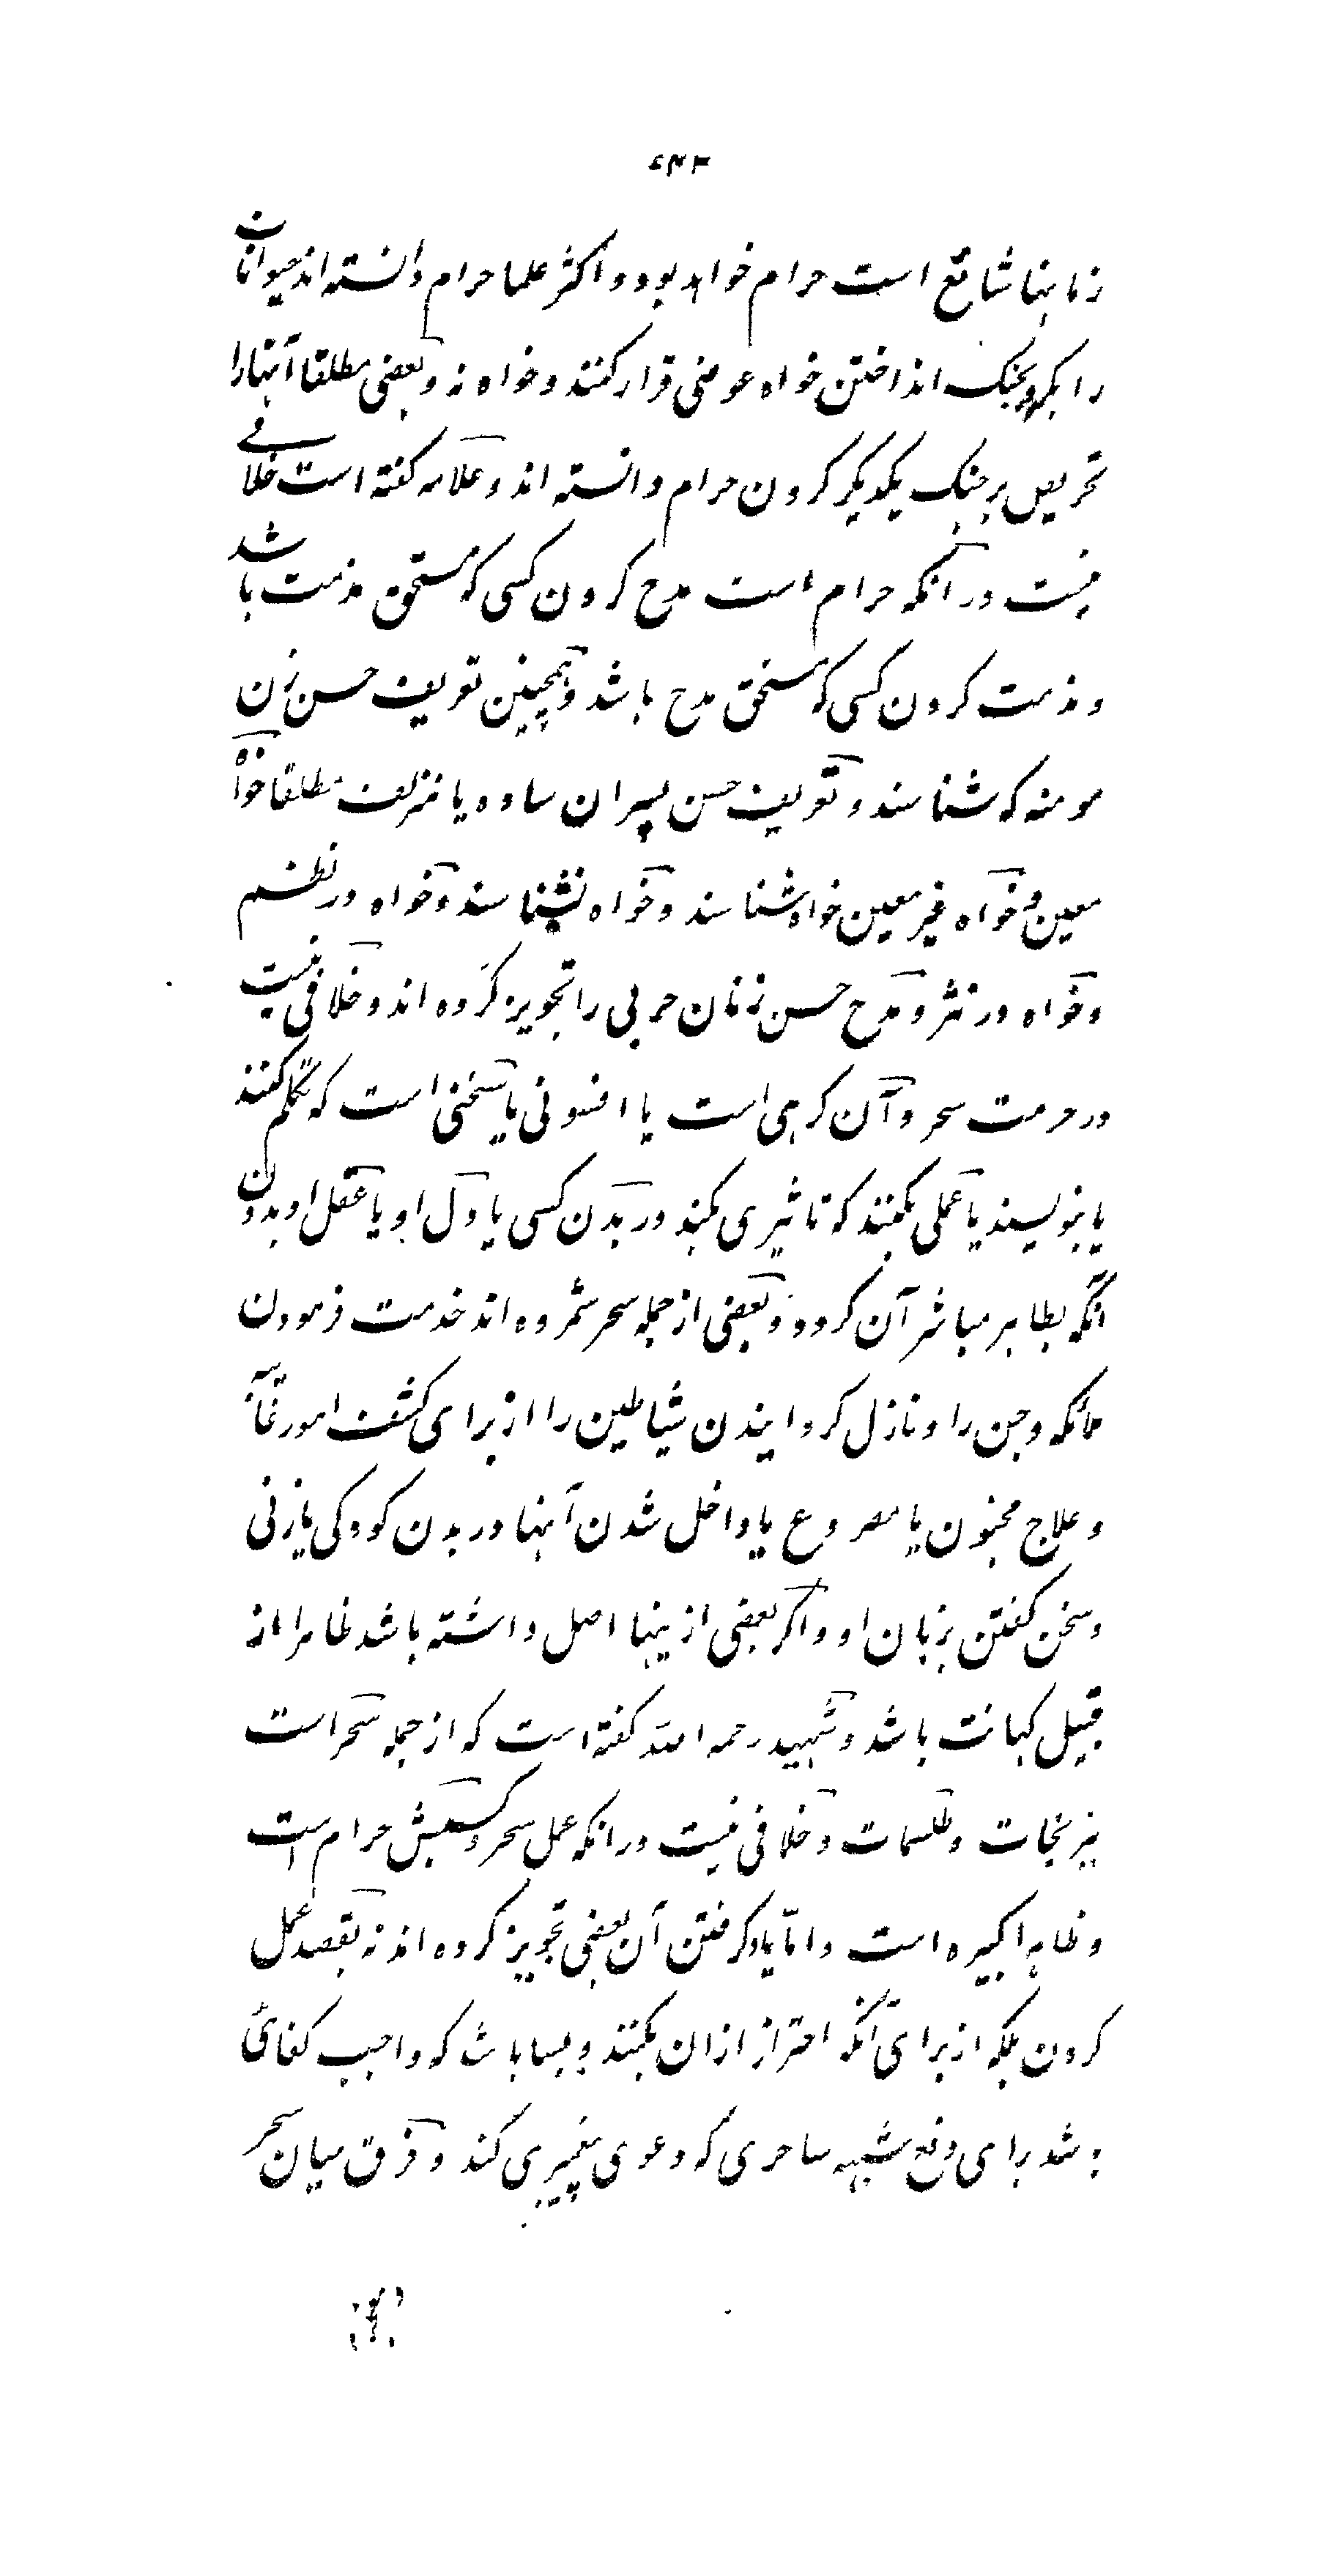 ۶۴۳
زمانها شائع است حرام خواهد بود و اکثر علما حرام دانسته اند حیوانات
را بکروبجنک انداختن خواه عوضی قرار کنند و خواه نه و بعضی مطلقا آنها را
تحریص بر جنک یکدیکر کردن حرام دانسته اند و علامه کفته است خلافے
نیست در انکه حرام است مدح کردن کسی که مستحق مذمت باشد
و مذمت کردن کسی که مستحق مدح باشد و همچنین تعریف حسن زن
مومنه که شناسند و تعریف حسن پسران ساده یا مزلف مطلقا خواه
معین و خواه غیر معین خواه شناسند و خواه نشناسند و خواه در نظم
و خواه در نثر و مدح حسن زنان حربی را تجویز کرده اند و خلافی نیست
در حرمت سحر و آن کرهی است یا افسونی یا سخنی است که تکلم کنند
یا بنویسند یا عملی بکنند که تاثیری بکند در بدن کسی یا دل او یا عقل او بدون
انکه بظاهر مباشر آن کردد و بعضی از جمله سحر شمرده اند خدمت فرمودن
ملائکه و جن را و نازل کردانیدن شیاطین را از برای کشف امور غائبه
و علاج مجنون یا مصروع یا داخل شدن آنها در بدن کودکی یا زنی
و سخن کفتن بزبان او و اکر بعضی ازینها اصل داشته باشد ظاهرا از
قبیل کهانت باشد و شهید رحمه الله کفته است که از جمله سحر است
نیرنجات و طلسمات و خلافی نیست در انکه عمل سحر و کسبش حرام است
و ظاهرا کبیره است و امّا یاد کرفتن آن بعضی تجویز کرده اند نه بقصد عمل
کردن بلکه از برای آنکه احتراز ازان بکنند و بسا باشد که واجب کفائی
باشد برای دفع شبهه ساحری که دعوی پیغمبری کند و فرق میان سحر